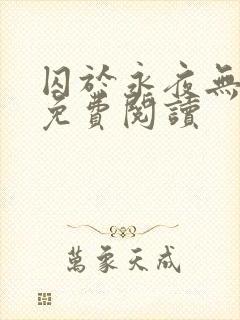 囚於永夜無
免費閱讀
萬象天成